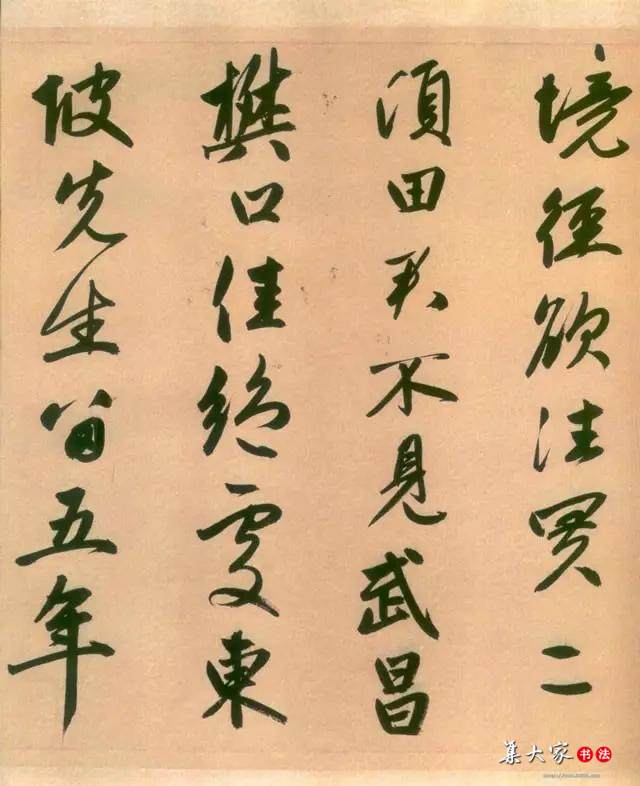 境徑欲往買二
頃田君不見武昌
樊口佳絕處東
坡先生留五年
集大家书法